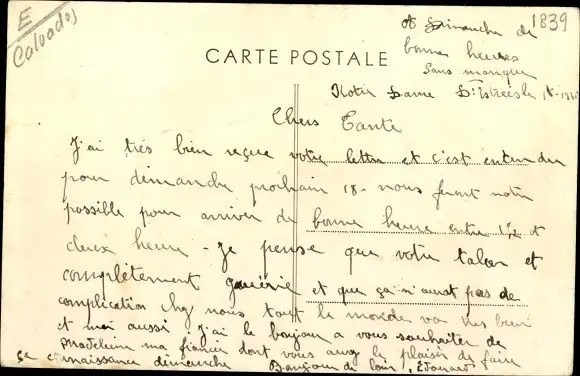 E
Calvados
1839
A Dimanche de
bonne heures
Sans manque
CARTE POSTALE
Notre Dame D'Estrées le
Chers Tante
J'ai très bien reçue votre lettre et c'est entendu
pour dimanche prochain 18 - nous feront notre
possible pour arriver de bonne heure entre 1h½ et
deux heure - je pense que votre talon et
complètement guérie et que ça n'aurat pas de
complication chez nous tout le monde va très bien
et moi aussi J'ai le bonjour a vous souhaiter de
Madeleine ma fiancée dont vous aurez le plaisir de faire
ça connaissance dimanche Bonjour de loin, Edouard